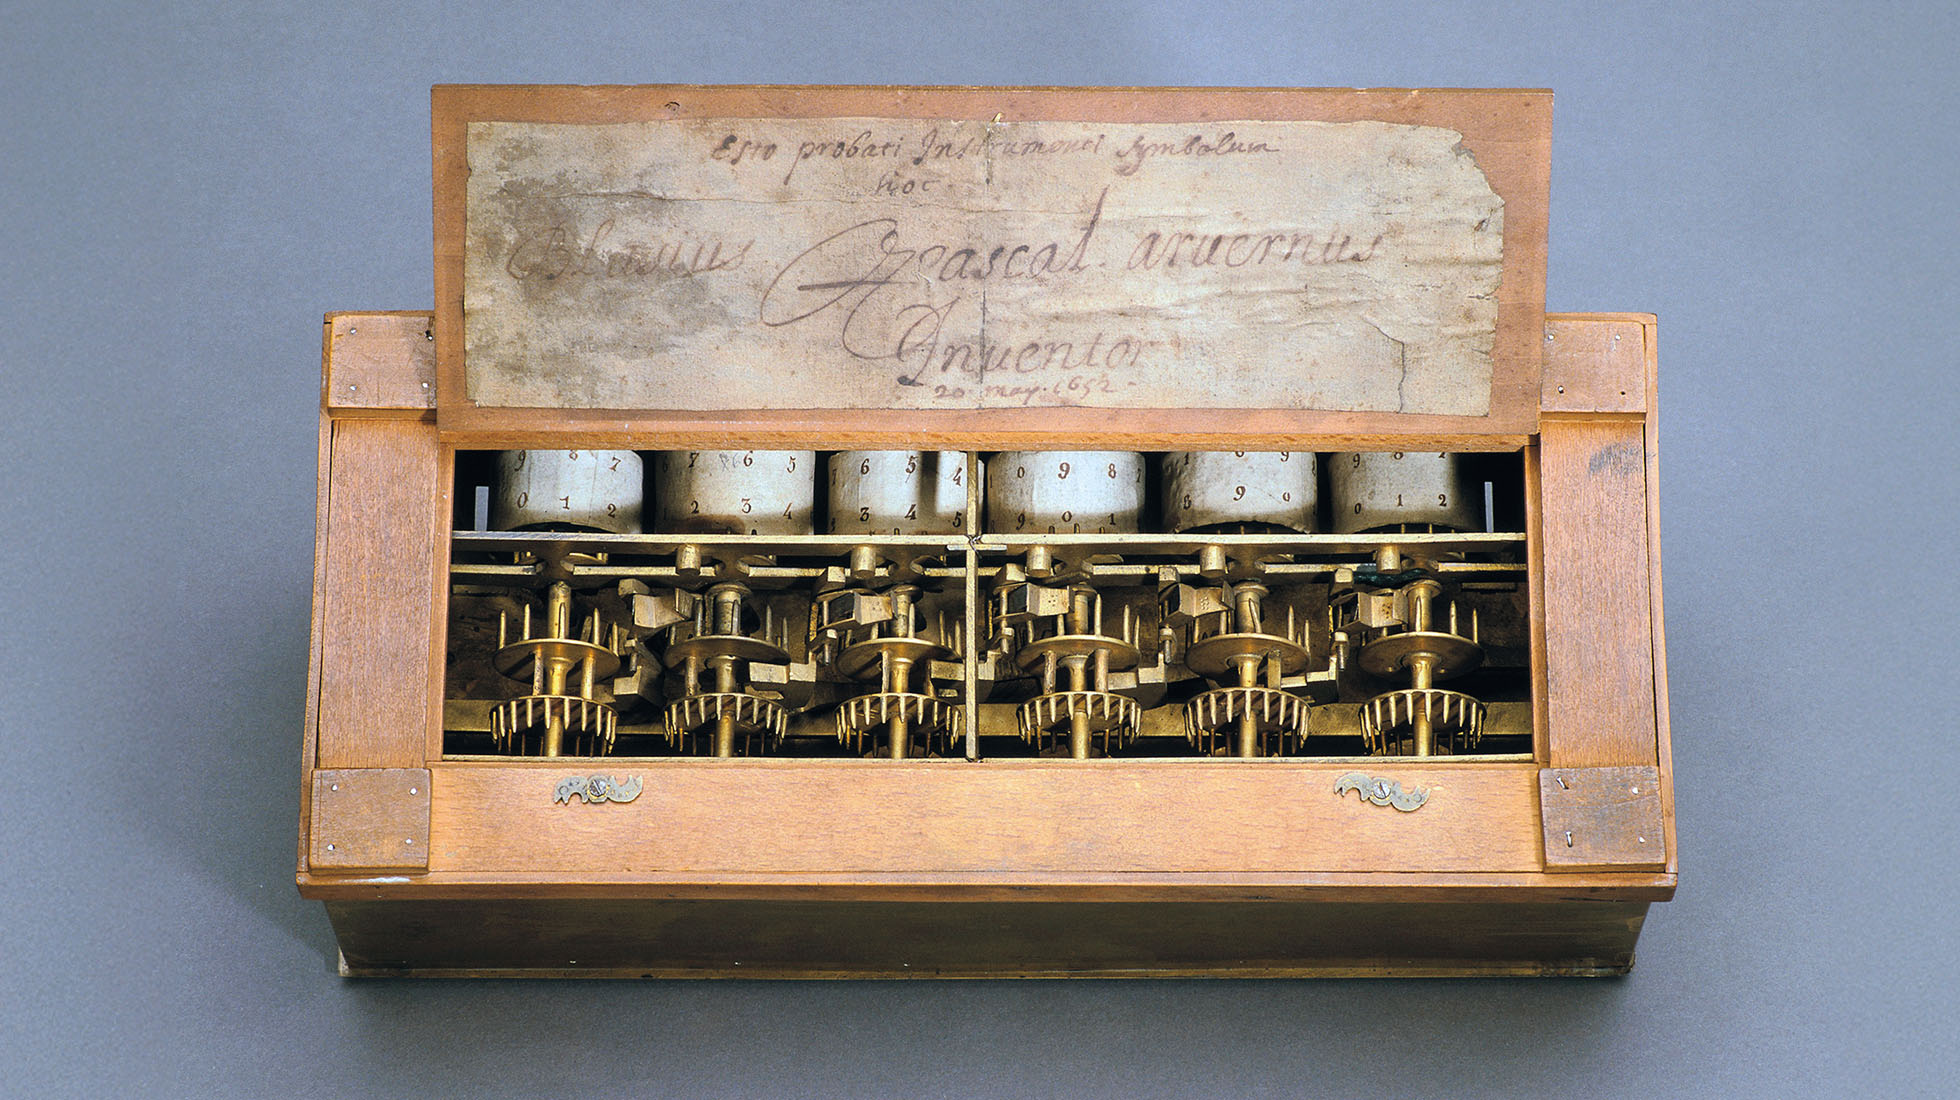 Esto probati Instrumenti symbolum
hoc.
Blasius Pascal. aruernus
Inuentor
20 may. 1652.
9 8 7 7 6 5 6 5 4 0 9 8 1 0 9 9 8 7
0 1 2 2 3 4 3 4 5 9 0 1 8 9 0 0 1 2